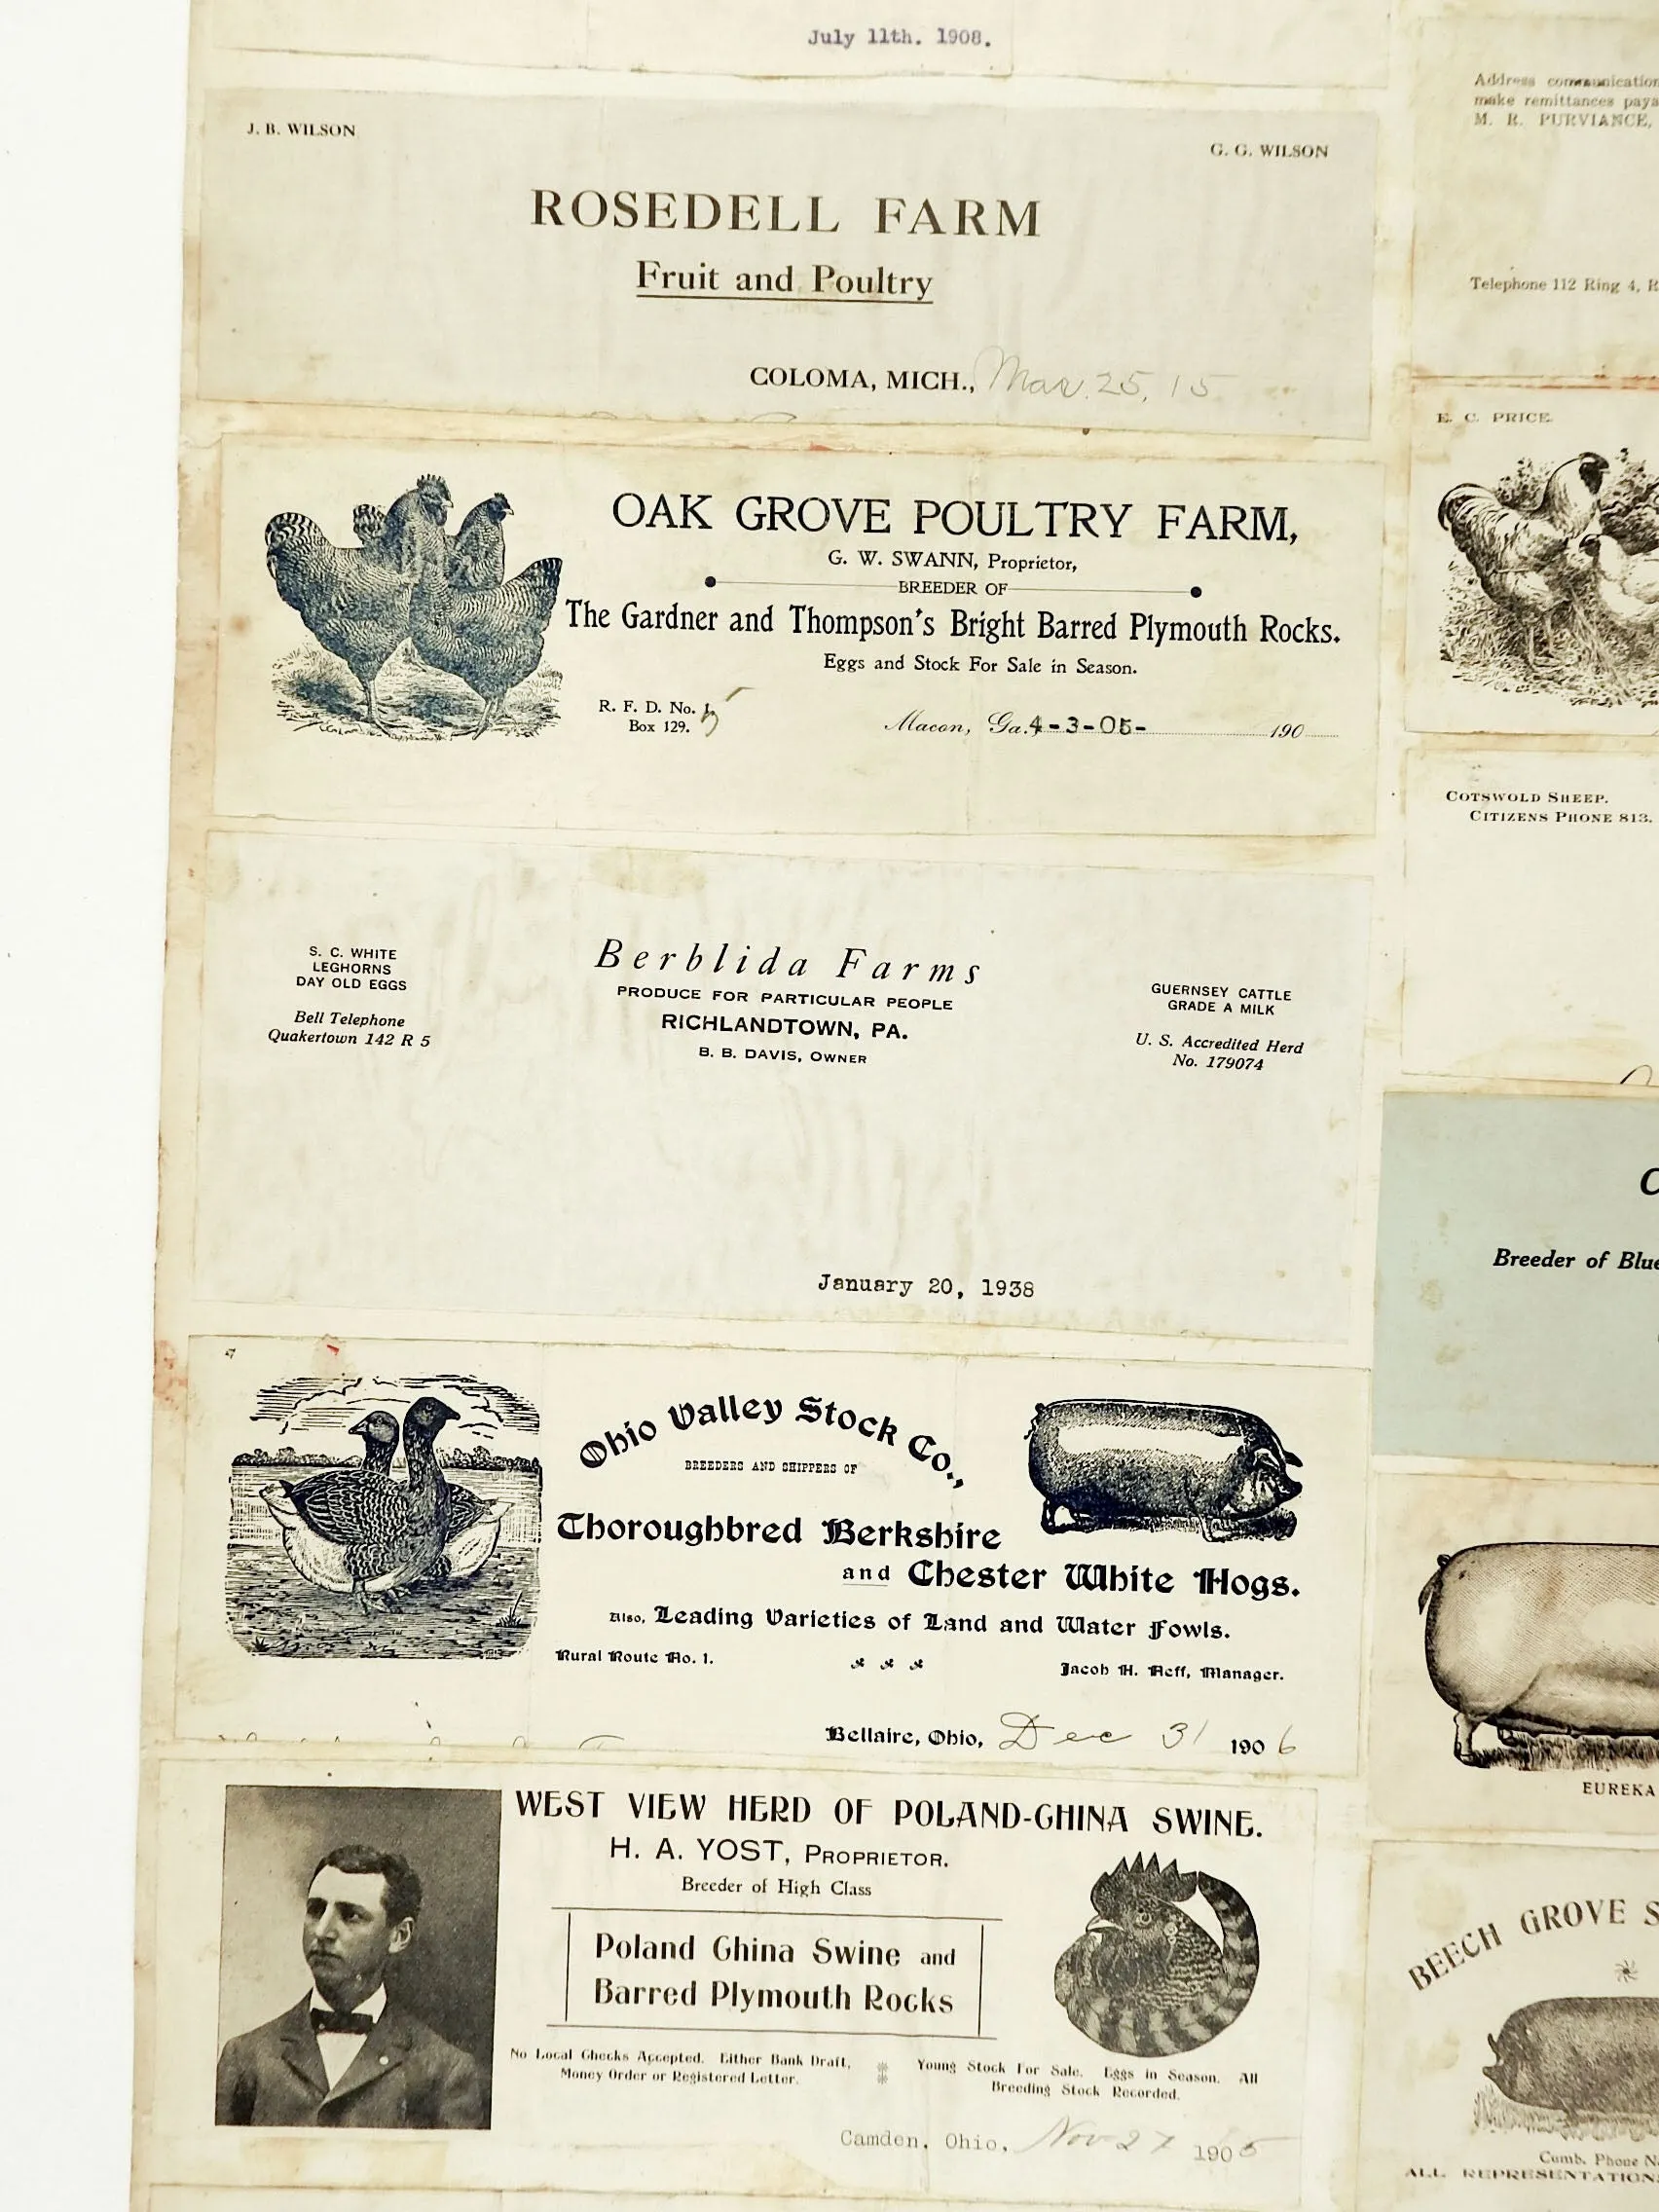 July 11th. 1908.
J. B. WILSON
G. G. WILSON
ROSEDELL FARM
Fruit and Poultry
COLOMA, MICH., Mar. 25, 15
OAK GROVE POULTRY FARM,
G. W. SWANN, Proprietor,
BREEDER OF
The Gardner and Thompson's Bright Barred Plymouth Rocks.
Eggs and Stock For Sale in Season.
R. F. D. No.
Box 129.
Macon, Ga. 4-3-05- 190
S. C. WHITE
LEGHORNS
DAY OLD EGGS
Bell Telephone
Quakertown 142 R 5
Berblida Farms
PRODUCE FOR PARTICULAR PEOPLE
RICHLANDTOWN, PA.
B. B. DAVIS, OWNER
GUERNSEY CATTLE
GRADE A MILK
U. S. Accredited Herd
No. 179074
January 20, 1938
Ohio Valley Stock Co.,
BREEDERS AND SHIPPERS OF
Thoroughbred Berkshire
and Chester White Hogs.
Also, Leading Varieties of Land and Water Fowls.
Rural Route No. 1.
Jacob H. Neff, Manager.
Bellaire, Ohio, Dec 31 1906
WEST VIEW HERD OF POLAND-CHINA SWINE.
H. A. YOST, PROPRIETOR.
Breeder of High Class
Poland China Swine and
Barred Plymouth Rocks
No Local Checks Accepted. Either Bank Draft,
Money Order or Registered Letter.
Young Stock For Sale. Eggs in Season. All
Breeding Stock Recorded.
Camden, Ohio, Nov 27 1905
Address communication
make remittances paya
M. R. PURVIANCE,
Telephone 112 Ring 4, R
E. C. PRICE.
COTSWOLD SHEEP.
CITIZENS PHONE 813.
C
Breeder of Blue
EUREKA
BEECH GROVE S
Cumb. Phone N
ALL REPRESENTATION